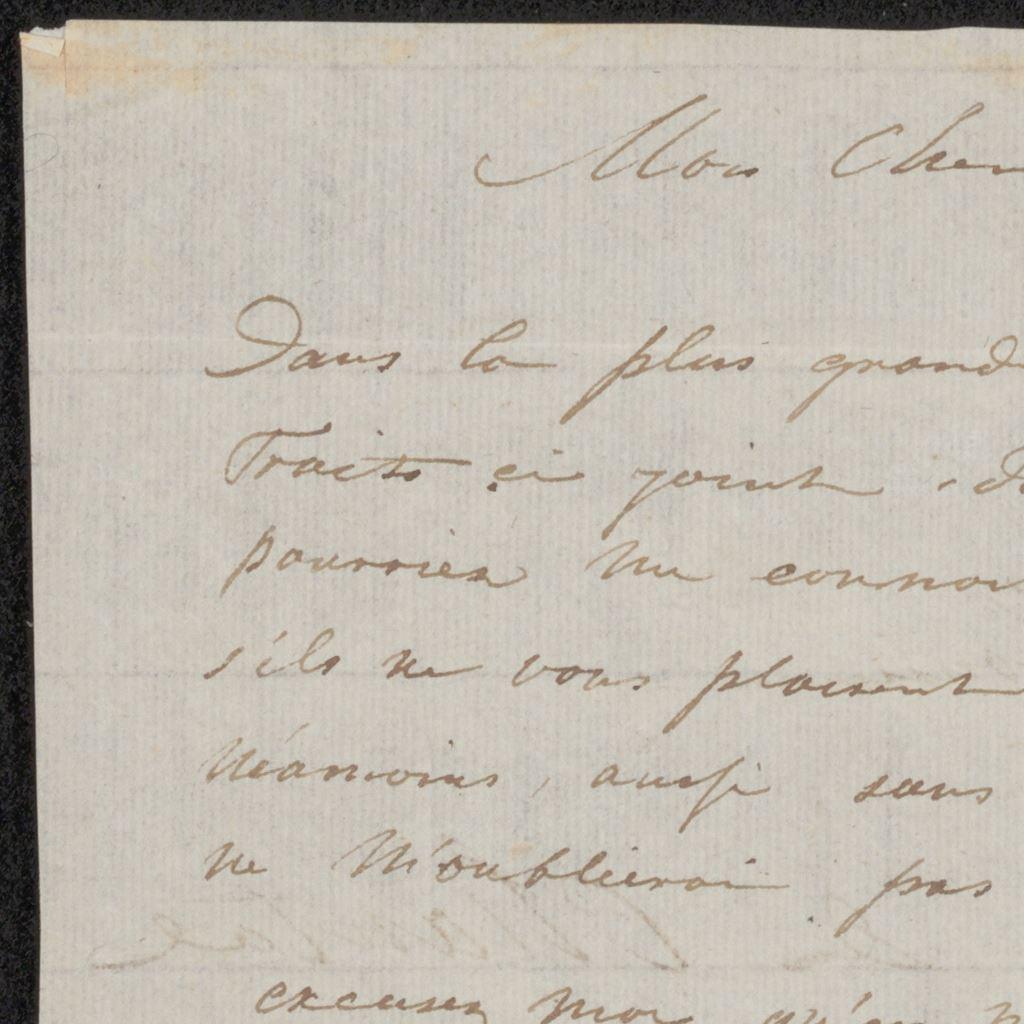 Mon Cher
Dans la plus grand
Traits ci joint
pourriez me connoi
s'ils ne vous plaisent
Néanmoins, aussi sans
ne m'oublierai pas
excusez moi qu'en